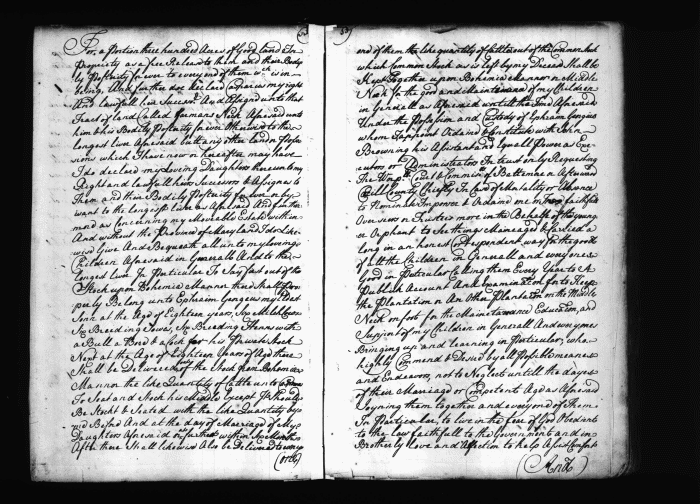 For, a Portion three hundred Acres of Good land In
Property as a free Release to them and their Body
ly Posterity forever to every one of them wch is in
being, And further doe declare Casparus my right
And lawfull heir Successr And Assigns unto that
Tract of land Called Germans Neck Aforesaid unto
him & his Bodily Posterity forever Otherwise to the
longest liver Aforesaid but any other land or Posses
sions which I have now or hereafter may have
I do declare my loving Daughters here unto my
Right and lawfull heirs Successors & Assignes to
Them and their Bodily Posterity forever or by
want to the longest liver as Aforesaid And further
more as Concerning my Moveable Estate within
And without the Province of Maryland I do like
wise Give And Bequeath all unto my loving
Children Aforesaid in Generall And to the
longest liver In Particular To Say first out of the
Stock upon Bohemia Mannor there Shall Pro
perly Belong unto Ephraim Georgius my Eldest
Sonn at the Age of Eighteen years, Six Milch Cows
Six Breeding Sows, Six Breeding Hens with
a Bull a Boar & a Cock for his Private Stock
Next at the Age of Eighteen years of Age there
Shall be Delivered out of the Stock from Bohemia
Mannor the like Quantity of Cattle unto
To Seat and Stock his Middle Neck Except It Should
Be Stockt & Seated with the like Quantity by
me Before And at the day of Marriage of My
Daughters Aforesaid or further within Six Months
After there Shall likewise Also be Delivered to every
(one)
one of them the like quantity of Cattle out of the Common Stock
which Common Stock as is left by my Decease Shall be
Kept Together upon Bohemia Mannor or Middle
Neck for the good and Maintenance of my Children
in Generall as Aforesaid untill the time Aforesaid
Under the Possession and Custody of Ephraim Georgius
whom I Appoint Ordain & Constitute with John
Browning his Assistant and Equall Power as Exe
cutors or Administrators In trust only Requesting
The Worpll Court & Commissrs of Baltemore Afterward
Cecill County Chiefly In Case of Mortality or Absence
To Nominate Impower & Ordaine one more faithfull
Overseer or Trustee more in the Behalf of the young
er Orphant to See things Mannaged & Carried a
long in an honest or Dependent way for the good
of all the Children in Generall and every ones
Good in Particular Calling them Every Year to A
Publick Account And Examination for to Keep
the Plantation or An Other Plantation on the Middle
Neck on foot for the Maintenance Education, and
Support of my Children in Generall And every ones
Bringing up and learning in Particular, wh
highly Commend & Desired by all Possible meanes
and Endeavors, not to Neglect untill the dayes
of their Marriage or Competent Age as Aforesaid
Joyning them together and every one of them
In Particular, to live in the fear of God Obedient
to the law faithfull to the Government and in
Brotherly love and Affection to help Assist Comfort
(And)